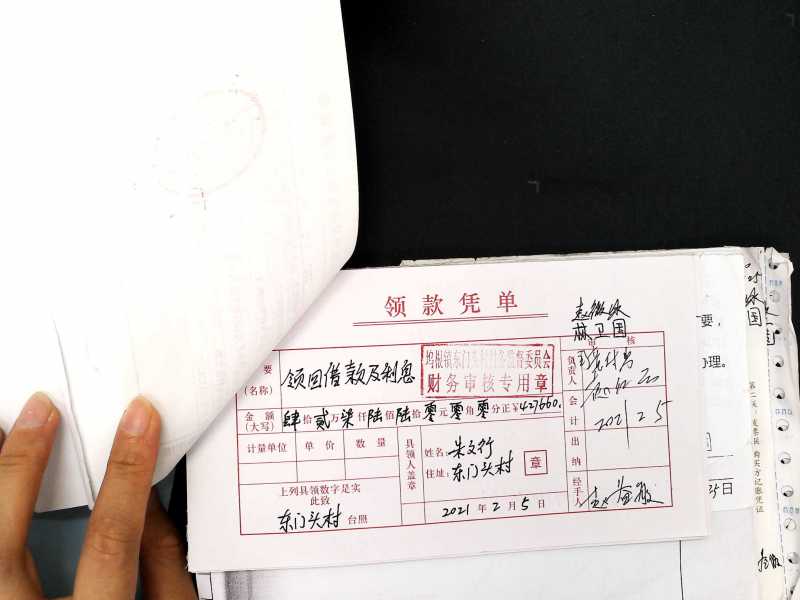 领款凭单
林卫国
要
(名称)
领回借款及利息
坞根镇东门头村村务监督委员会
财务审核专用章
审核
负责人
金额
(大写)
肆拾贰万柒仟陆佰陆拾零元零角零分正¥427660.
会计
2021 2 5
计量单位 单价 数量
具领人盖章
姓名: 朱文行
住址: 东门头村
章
出纳
上列具领数字是实
此致
东门头村 台照
2021年2月5日
经手人
要,
办理。
5日
国
第二联:发票联 购买方记账凭证